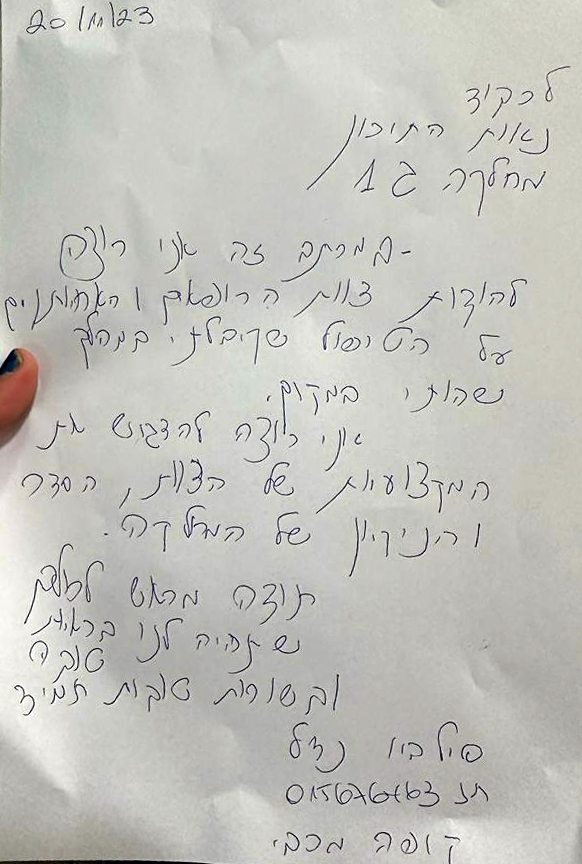 20/11/23
לכבוד
נאות התיכון
מחלקה ג 1
-במכתב זה אני רוצה
להודות צוות הרופאים והאחותנים
על הטיפול שקיבלתי במהלך
שהותי במקום.
אני רוצה להדגיש את
המקצועיות של הצוות, הסדר
והניקיון של המחלקה.
תודה מראש לכולם
שתהיה לנו בריאות
טובה
ובשורות טובות תמיד
סילביו
תז
קופה מכבי